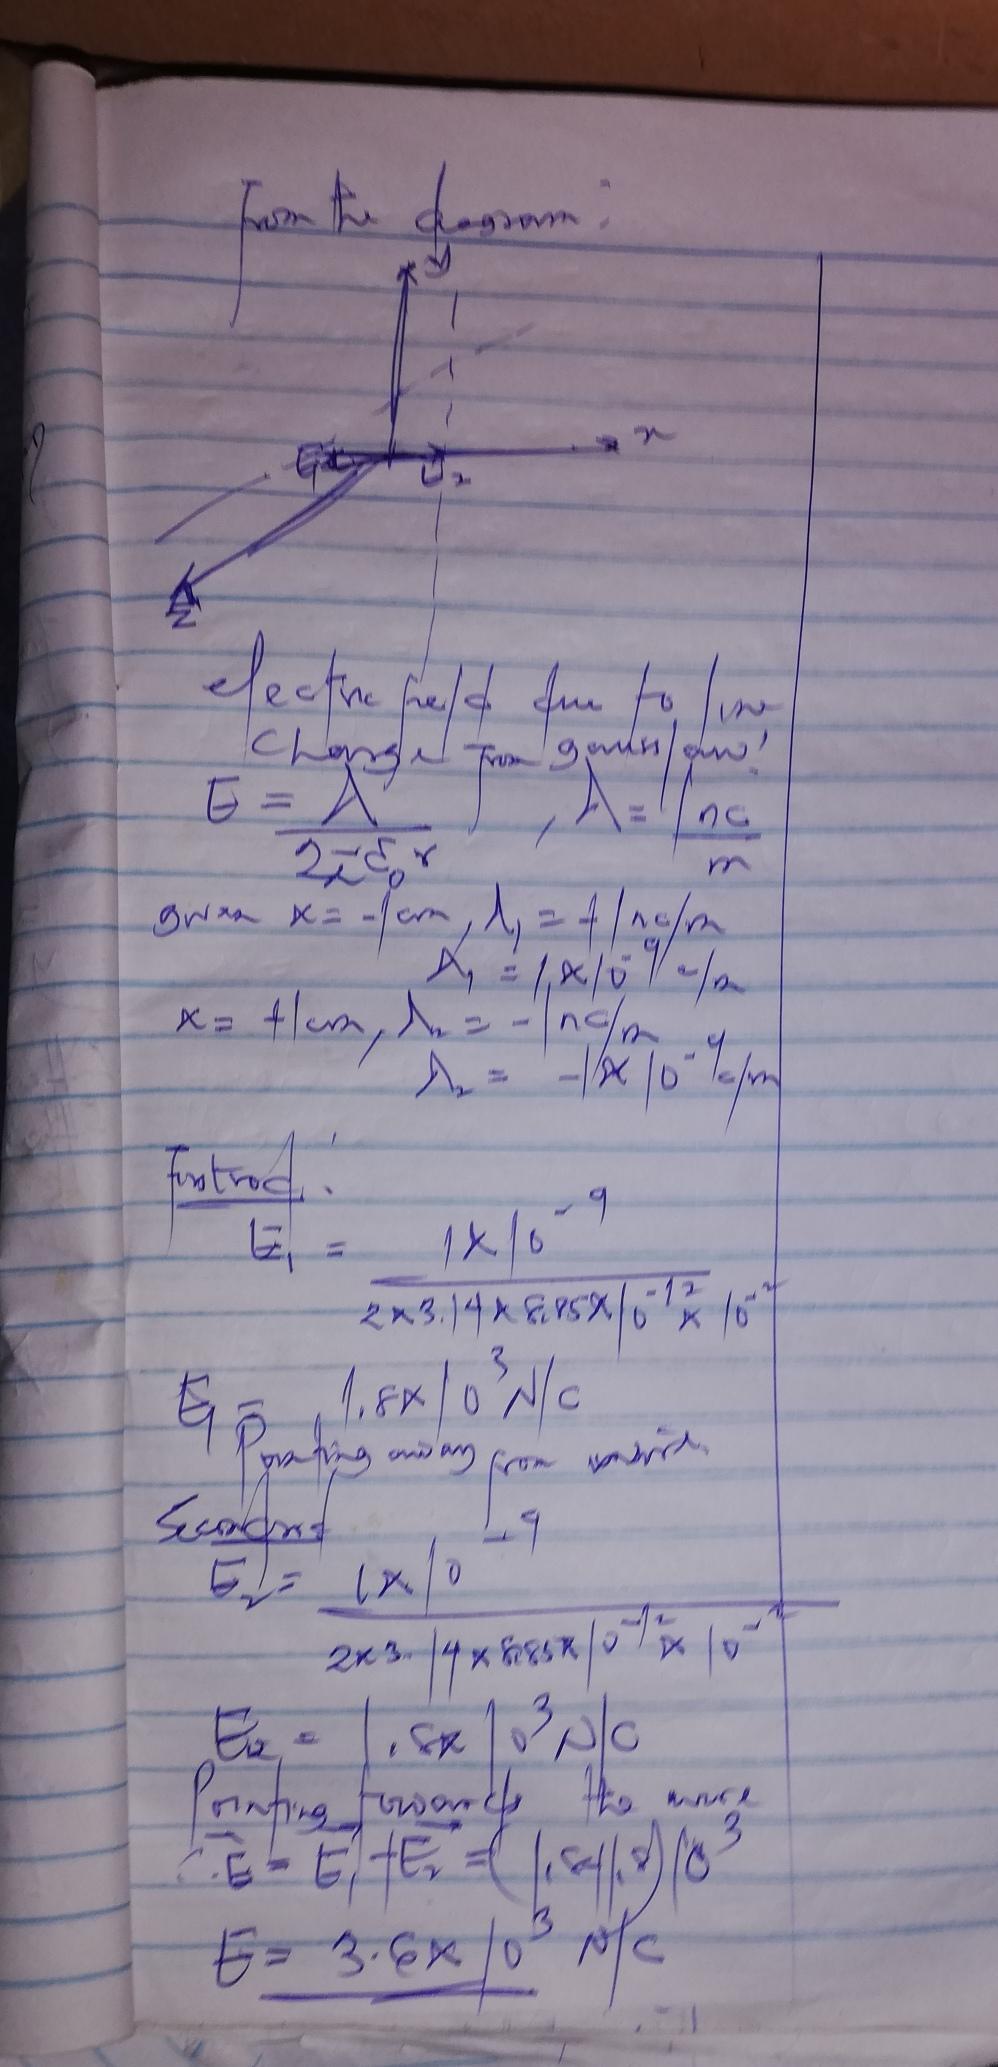 From the diagram:
y
x
E₁ E₂
z
electric field due to line
charge from gauss law:
E = λ / 2πε₀r , λ = 1nc/m
given x = -1cm, λ₁ = +1nc/m
λ₁ = 1x10⁻⁹ c/m
x = +1cm, λ₂ = -1nc/m
λ₂ = -1x10⁻⁹ c/m
First rod:
E₁ = 1x10⁻⁹ / 2x3.14x8.85x10⁻¹²x10⁻²
E₁ = 1.8x10³ N/C
Pointing away from
Second rod
E₂ = 1x10⁻⁹ / 2x3.14x8.85x10⁻¹²x10⁻²
E₂ = 1.8x10³ N/C
Pointing towards the wire
∴ E = E₁ + E₂ = (1.8+1.8)10³
E = 3.6x10³ N/C